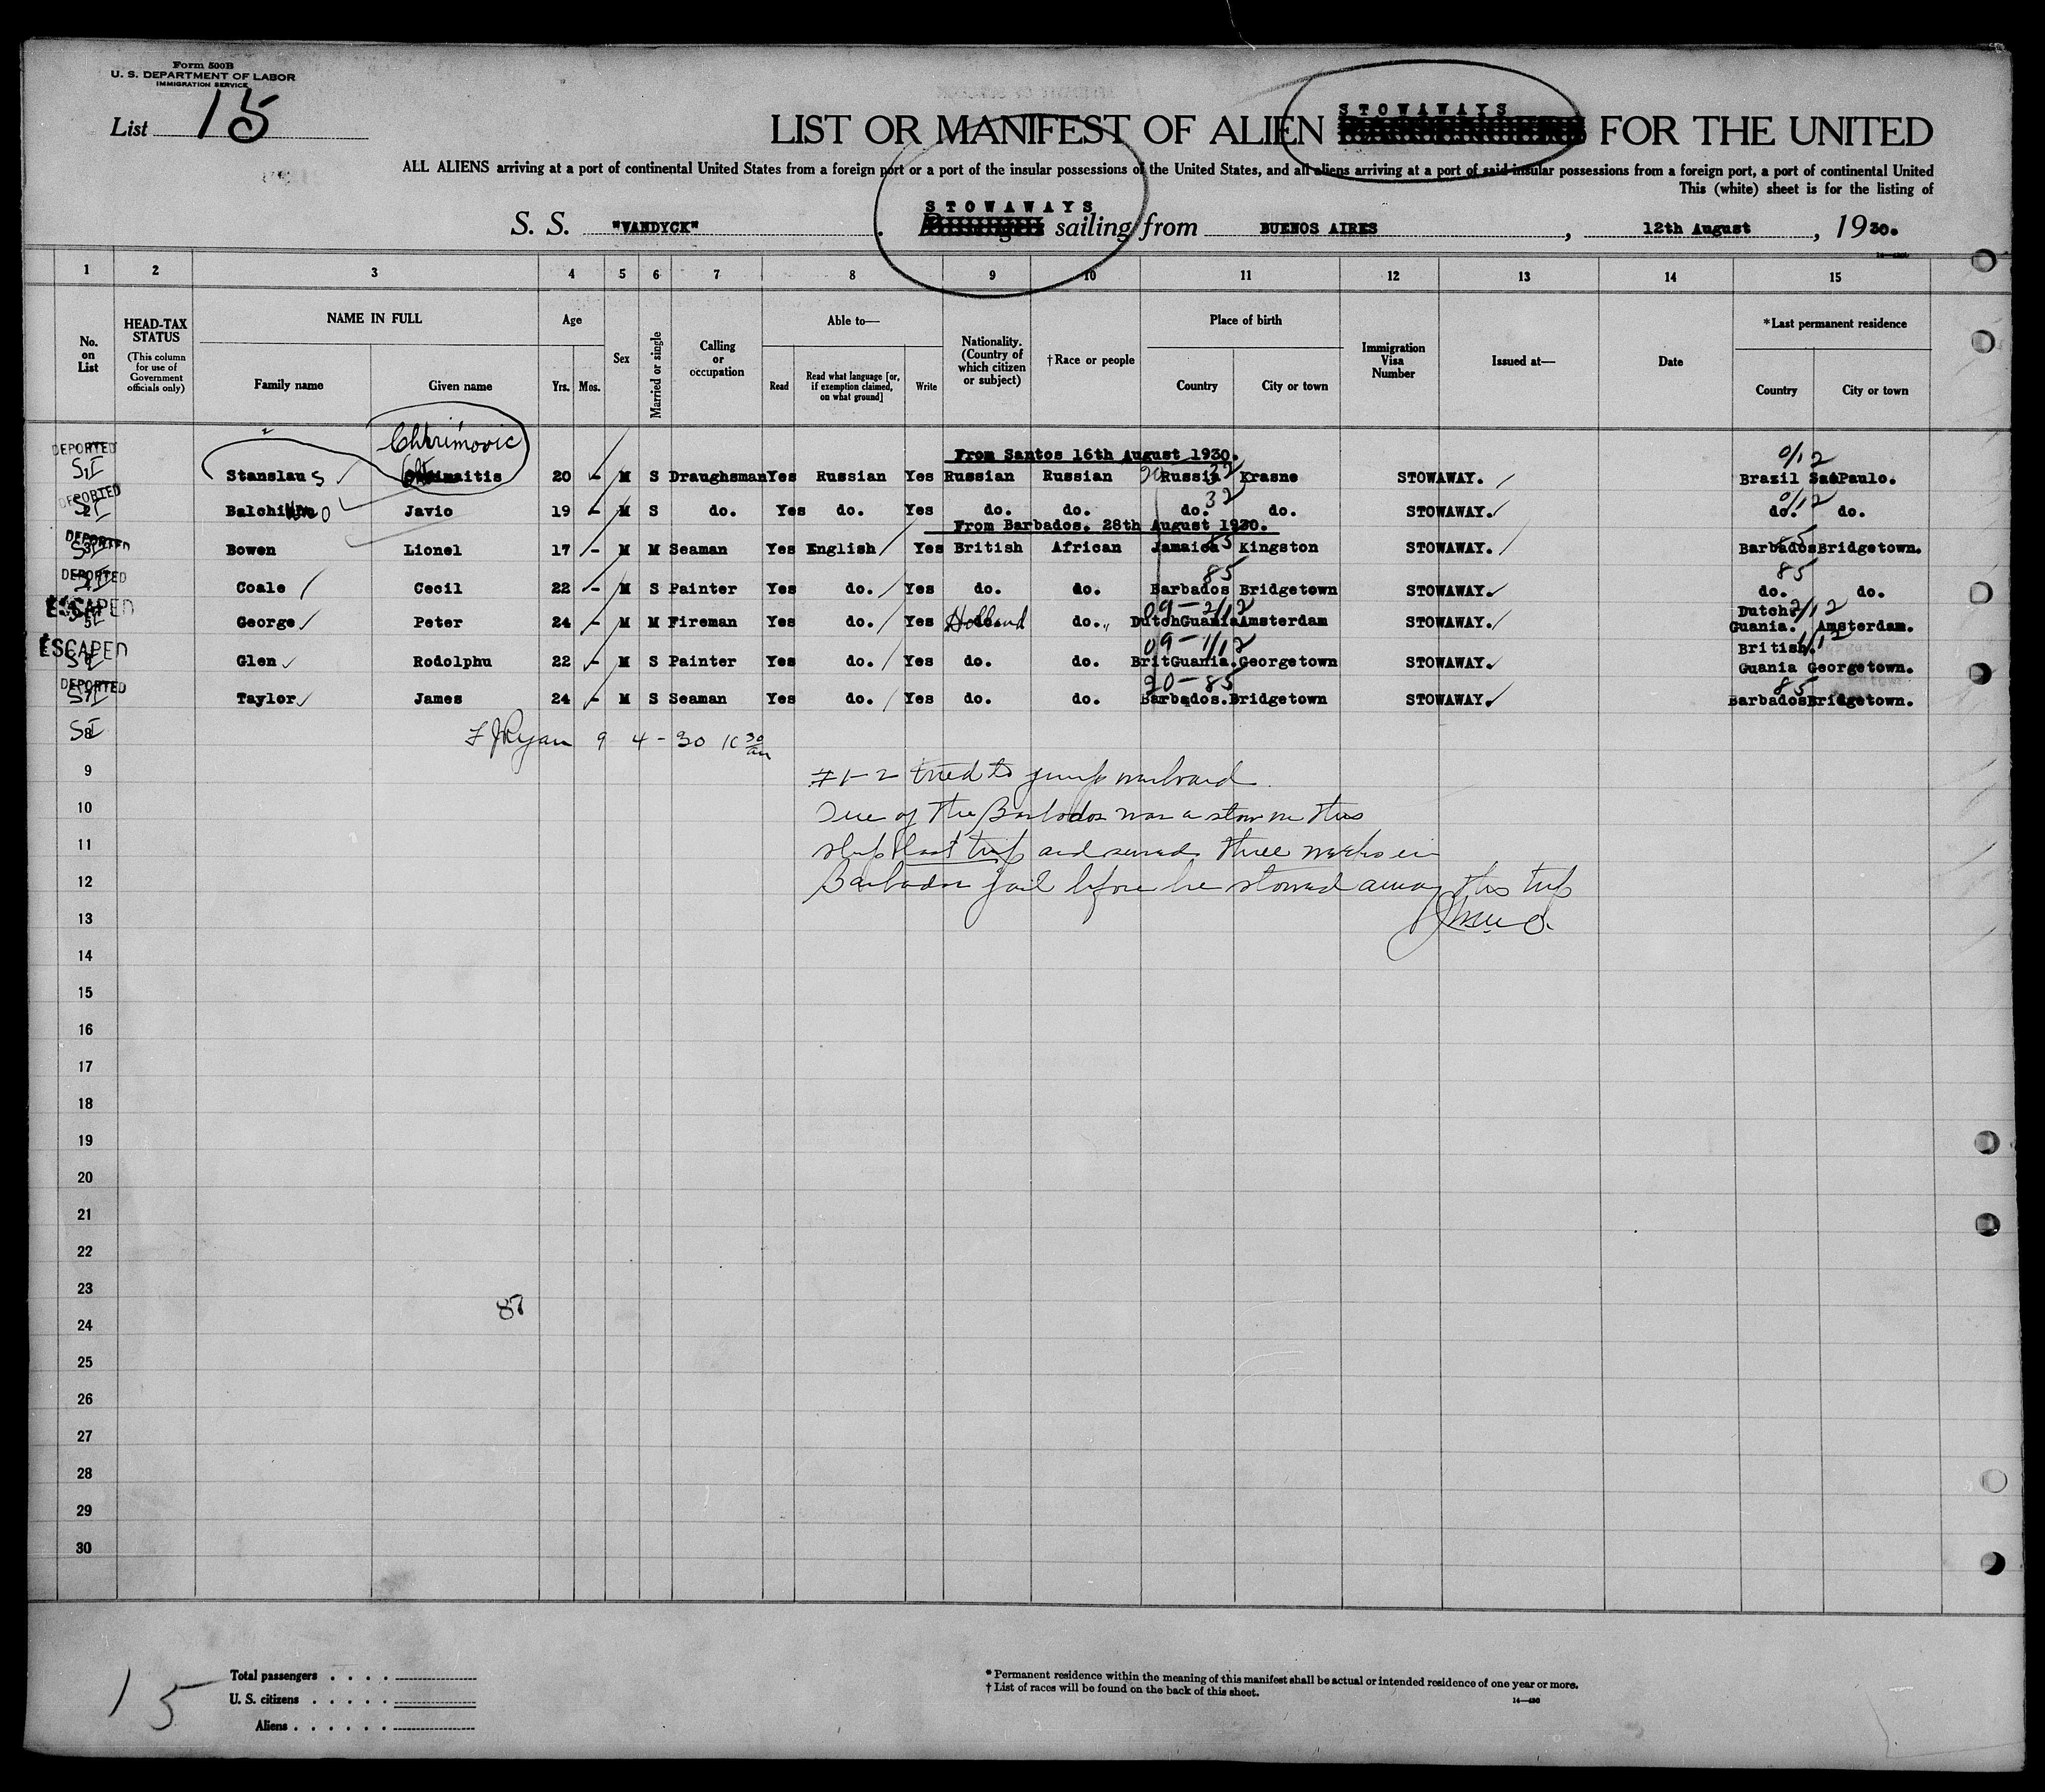 Form 500B
U. S. DEPARTMENT OF LABOR
IMMIGRATION SERVICE
List 15
STOWAWAYS
LIST OR MANIFEST OF ALIEN FOR THE UNITED
ALL ALIENS arriving at a port of continental United States from a foreign port or a port of the insular possessions of the United States, and all aliens arriving at a port of said insular possessions from a foreign port, a port of continental United
This (white) sheet is for the listing of
STOWAWAYS
S. S. "VANDYCK" . Passengers sailing from BUENOS AIRES , 12th August , 1930.
1 2 3 4 5 6 7 8 9 10 11 12 13 14 15
No. on List
HEAD-TAX STATUS
(This column for use of Government officials only)
NAME IN FULL
Family name
Given name
Age
Yrs.
Mos.
Sex
Married or single
Calling or occupation
Able to—
Read
Read what language [or, if exemption claimed, on what ground]
Write
Nationality. (Country of which citizen or subject)
†Race or people
Place of birth
Country
City or town
Immigration Visa Number
Issued at—
Date
*Last permanent residence
Country
City or town
Chirimovic
From Santos 16th August 1930.
0/12
DEPORTED
SI Stanslaus maitis 20 - M S Draughsman Yes Russian Yes Russian Russian 20 Russia 32 Krasne STOWAWAY. Brazil SaoPaulo.
32 0/12
DEPORTED
2 Balchi o Javio 19 - M S do. Yes do. Yes do. do. do. do. STOWAWAY. do. do.
From Barbados. 28th August 1930.
DEPORTED
3 Bowen Lionel 17 - M M Seaman Yes English Yes British African Jamaica 85 Kingston STOWAWAY. Barbados 85 Bridgetown.
85 85
DEPORTED
Coale Cecil 22 - M S Painter Yes do. Yes do. do. Barbados Bridgetown STOWAWAY. do. do.
09 - 2/12 Dutch 2/12
ESCAPED
5 George Peter 24 - M M Fireman Yes do. Yes Holland do. DutchGuania Amsterdam STOWAWAY. Guania. Amsterdam.
09 - 1/12 British. 1/12
ESCAPED
S6 Glen Rodolphu 22 - M S Painter Yes do. Yes do. do. BritGuania. Georgetown STOWAWAY. Guania Georgetown.
20 - 85 85
DEPORTED
S7 Taylor James 24 - M S Seaman Yes do. Yes do. do. Barbados. Bridgetown STOWAWAY. Barbados Bridgetown.
SI 8
F J Ryan 9 4 - 30 10 30 am
9
#1-2 tried to jump overboard
10
One of the Barbados was a stow on this
11
ship last trip and served three weeks in
12
Barbados jail before he stowed away this trip
13
14
15
16
17
18
19
20
21
22
23
87
24
25
26
27
28
29
30
Total passengers . . . .
U. S. citizens . . . . .
Aliens . . . . . .
15
* Permanent residence within the meaning of this manifest shall be actual or intended residence of one year or more.
† List of races will be found on the back of this sheet.
14—430